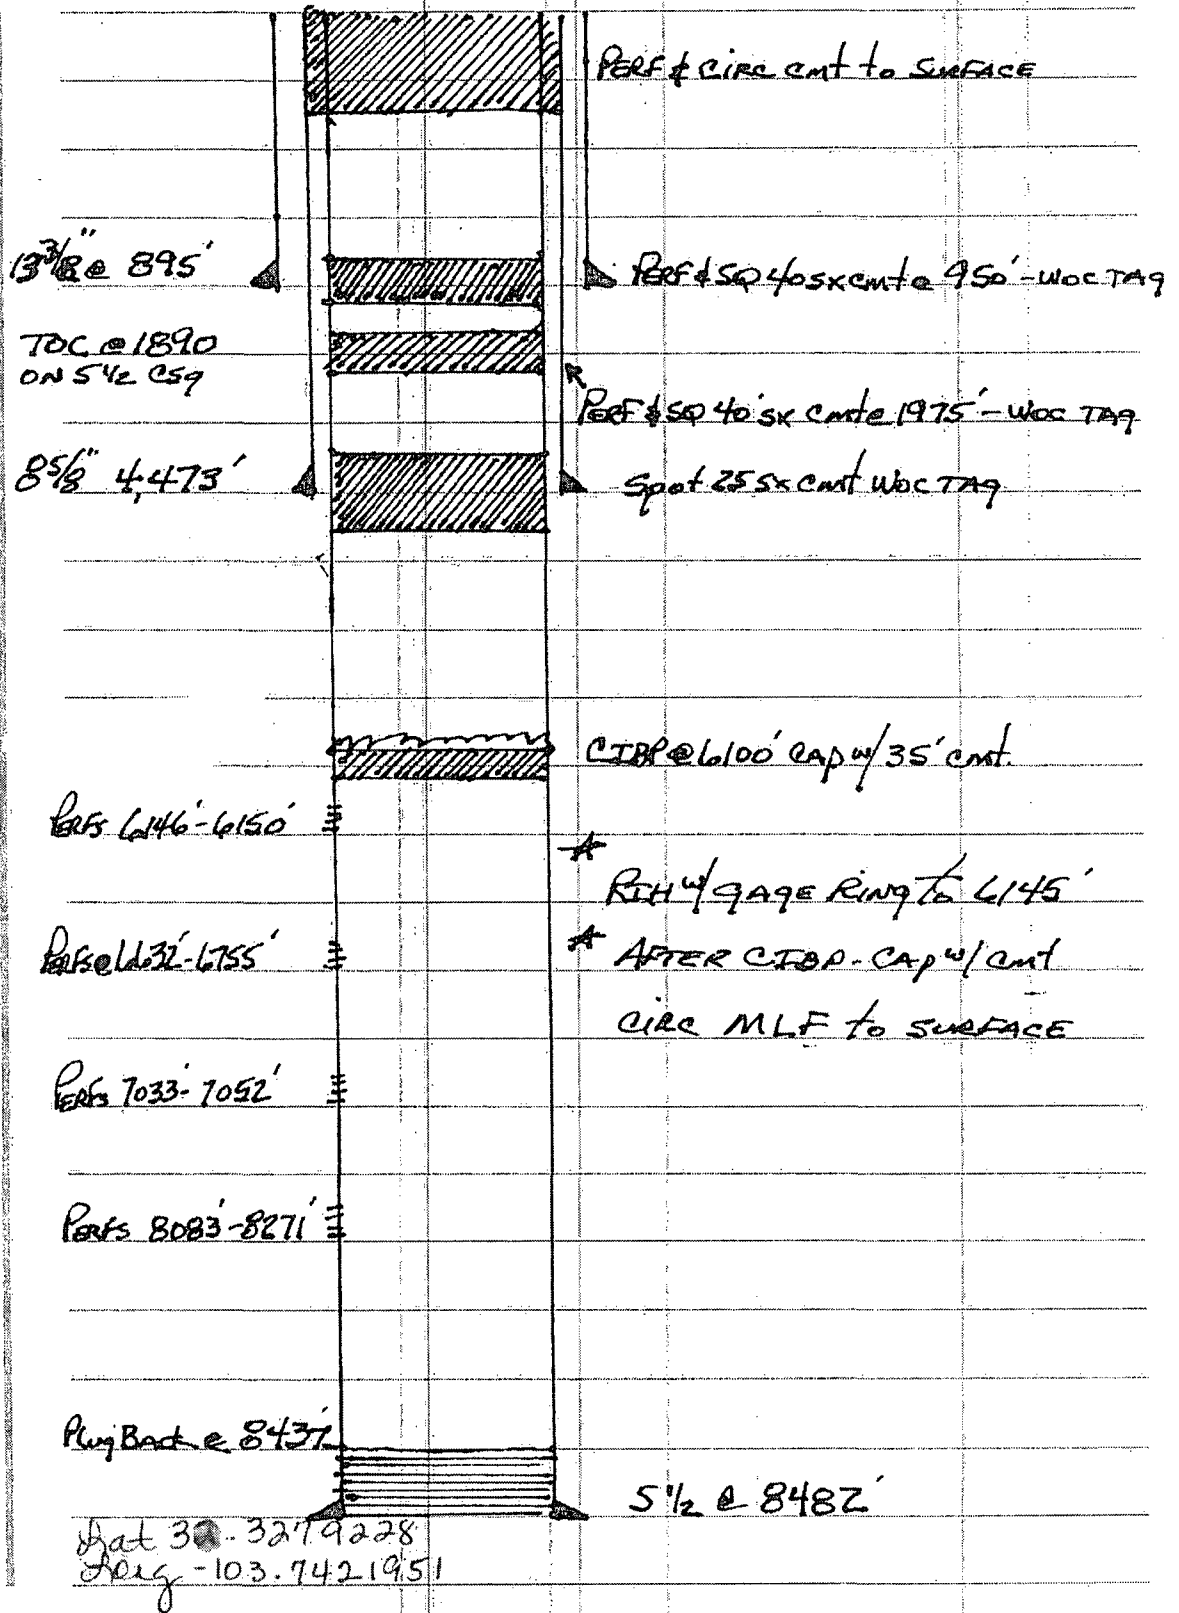 PERF & CIRC CMT to SURFACE
13 3/8" @ 895'
PERF & SQ 40 SX CMT @ 950' - WOC TAG
TOC @ 1890
ON 5 1/2 CSG
PERF & SQ 40 SX CMT @ 1975' - WOC TAG
8 5/8" 4,473'
Spot 25 SX CMT WOC TAG
CIBP @ 6100' CAP w/ 35' CMT.
PERFS 6146'-6150'
RIH w/ GAGE RING To 6145'
PERFS @ 6632'-6755'
AFTER CIBP - CAP w/ CMT
CIRC MLF to SURFACE
PERFS 7033'-7052'
PERFS 8083'-8271'
Plug Back @ 8437'
5 1/2 @ 8482'
Lat 32.3279228
Long -103.7421951